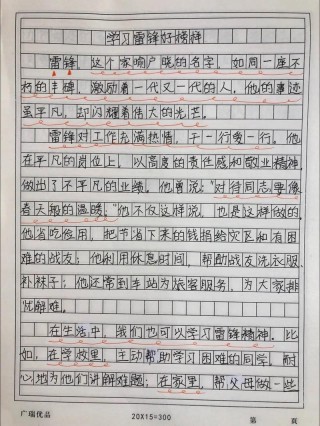 学习雷锋好榜样
雷锋,这个家喻户晓的名字,如同一座不
朽的丰碑,激励着一代又一代的人,他的事迹
虽平凡,却闪耀着伟大的光芒。
雷锋对工作充满热情,干一行爱一行。他
在平凡的岗位上,以高度的责任感和敬业精神,
做出了不平凡的业绩。他曾说:"对待同志要像
春天般的温暖。"他不仅这样说,也是这样做的。
他省吃俭用,把节省下来的钱捐给灾区和有困
难的战友;他利用休息时间,帮助战友洗衣服、
补袜子;他还常到车站为旅客服务,为大家排
忧解难。
在生活中,我们也可以学习雷锋精神。比
如,在学校里,主动帮助学习困难的同学,耐
心地为他们讲解难题;在家里,帮父母做一些
广瑞优品 20X15=300 第 页